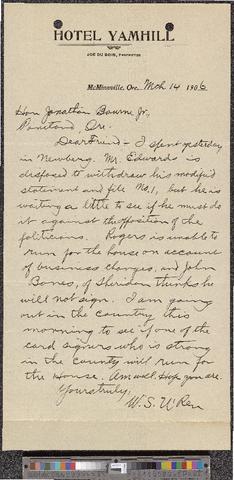 HOTEL YAMHILL
JOE DU BOIS, PROPRIETOR
McMinnville, Ore. Mch 14 1906
Hon Jonathan Bourne Jr,
Ore.
Dear Friend - I spent yesterday
in Newberg. Mr. Edwards is
disposed to withdraw his modified
statement and file No. 1, but he is
waiting a little to see if he must do
it against the opposition of the
politicians. Rogers is unable to
run for the house on account
of business changes, and John
Bones, of Sheridan thinks he
will not sign. I am going
out in the country this
morning to see if one of the
card signers who is strong
in the County will run for
the House. Am well. Hope you are.
Yours truly,
W. S. U'Ren